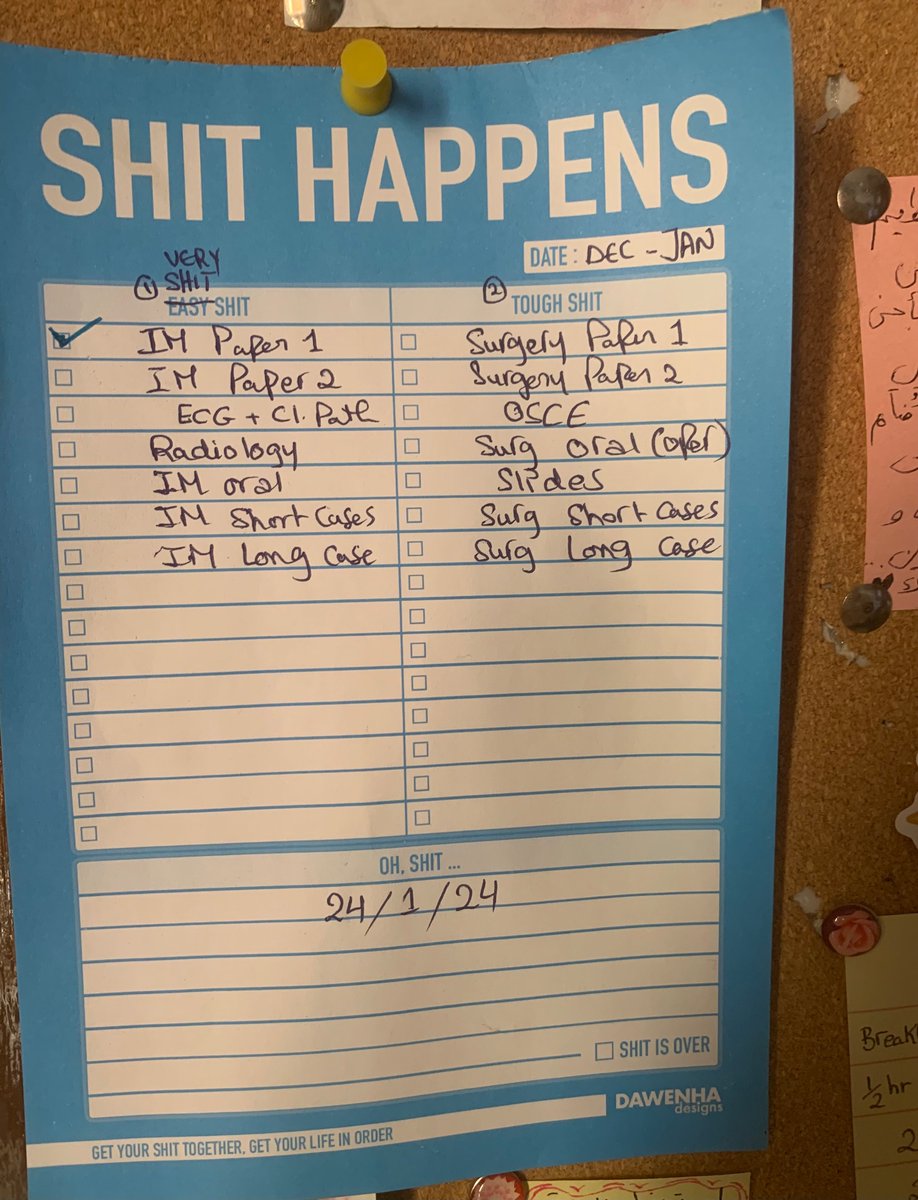 SHIT HAPPENS
DATE : DEC - JAN
VERY
① SHIT
EASY SHIT
IM Paper 1
IM Paper 2
ECG + Cl. Path
Radiology
IM oral
IM Short Cases
IM Long Case
② TOUGH SHIT
Surgery Paper 1
Surgery Paper 2
OSCE
Surg oral (oper)
Slides
Surg Short Cases
Surg Long Case
OH, SHIT ...
24/1/24
SHIT IS OVER
DAWENHA
designs
GET YOUR SHIT TOGETHER, GET YOUR LIFE IN ORDER
Break
½ hr
2